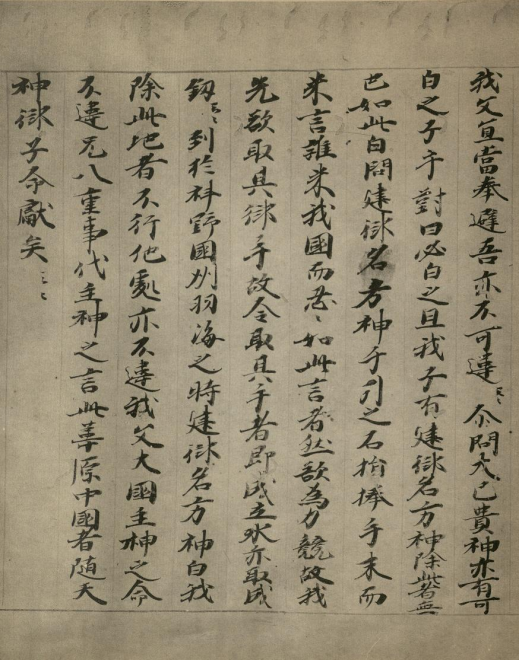 我父宜當奉避吾亦不可違云々尒問大己貴神亦有可
白之子乎對曰必白之且我子有建御名方神除此者無
也如此白間建御名方神千引之石指捧手末而
来言誰来我國而忍々如此言者然欲為力競故我
先欲取其御手故令取其手者即成立氷亦取成
釼云々到於科野國州羽海之時建御名方神白我
除此地者不行他處亦不違我父大國主神之命
不違八重事代主神之言此葦原中國者随天
神御子命獻矣云々